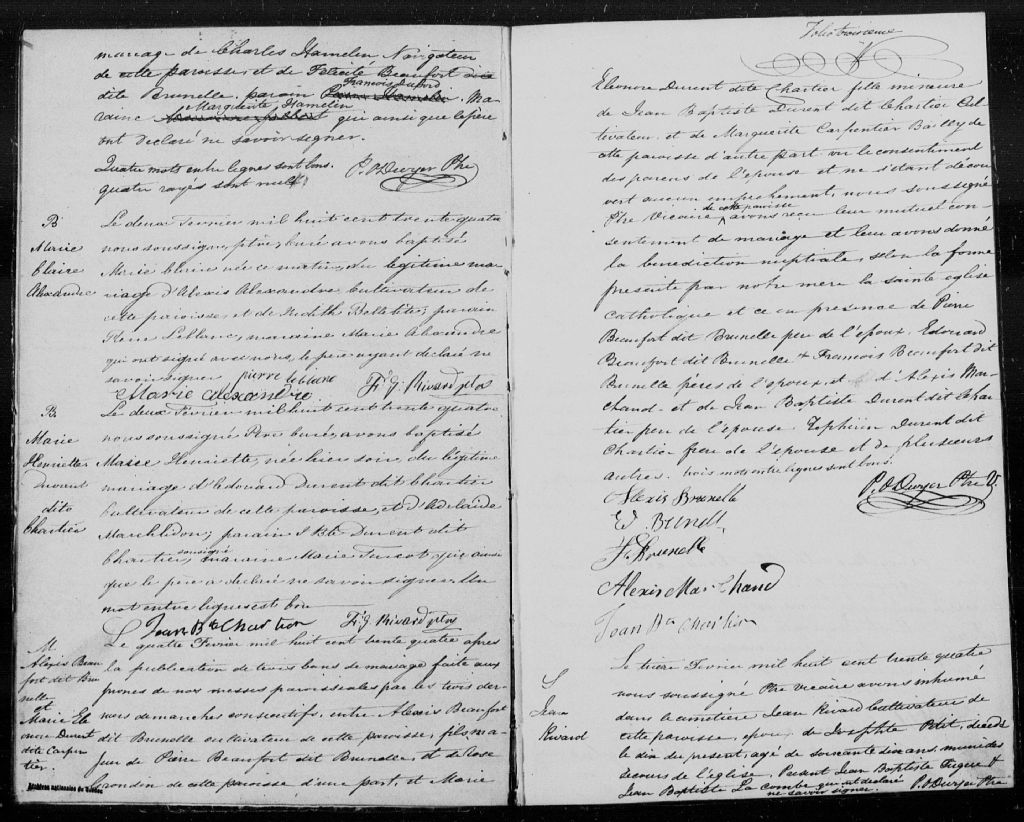 mariage de Charles Hamelin Navigateur
de cette paroisse, et de Felicité Beaufort dit
dite Brunelle, parain François Duford
Pierre Hamelin, Ma-
Marguerite Hamelin
raine qui ainsi que le père
ont déclaré ne savoir signer.
Quatre mots entre lignes sont bons.
quatre rayés sont nuls.
P. O Dwyer Ptre
B
Marie
Claire
Alexandre
Le deux Fevrier mil huit cent trente quatre
nous soussigné, ptre, curé avons baptisé
Marie Claire née ce matin, du légitime ma-
riage d'Alexis Alexandre Cultivateur de
cette paroisse, et de Judith Bellefile; parain
Pierre Leblanc, maraine Marie Alexandre
qui ont signé avec nous, le père ayant déclaré ne
savoir signer. pierre leblanc
Marie alexandre. Fr. J. Rivard ptre
B
Marie
Henriette
Durant
dite
Chartier
Le deux Fevrier mil huit cent trente quatre
nous soussigné Ptre curé, avons baptisé
Marie Henriette, née hier soir, du légitime
mariage d'Edouard Durent dit Chartier
Cultivateur de cette paroisse, et d'Adelaide
Marchildon; parain J. Bte Durent dit
Chartier soussigné, maraine Marie Turcot qui ainsi
que le père a déclaré ne savoir signer. Un
mot entre lignes est bon
Jean Bte Chartier Fr. J. Rivard ptre
M
Alexis Beau
fort dit Bru
nelle
et
Marie Ele
onore Durent
dite Carpen
tier.
Le quatre Fevrier mil huit cent trente quatre apres
la publication de trois bans de mariage faite aux
prones de nos messes paroissiales par les trois der-
niers dimanches consecutifs, entre Alexis Beaufort
dit Brunelle cultivateur de cette paroisse, fils ma-
jeur de Pierre Beaufort dit Brunelle, et de Rose
Grondin de cette paroisse d'une part, et Marie
Archives nationales du Québec
Folio troisieme
Eleonore Durent dite Chartier fille mineure
de Jean Baptiste Durent dit Chartier Cul-
tivateur, et de Marguerite Carpentier Bailly de
cette paroisse d'autre part vu le consentiment
des parens de l'epouse et ne s'étant décou
vert aucun empechement, nous soussigné
Ptre Vicaire de cette paroisse avons reçu leur mutuel con-
sentement de mariage et leur avons donné
la benediction nuptiale, selon la forme
prescrite par notre mere la sainte eglise
Catholique et ce en presence de Pierre
Beaufort dit Brunelle pere de l'epoux, Edouard
Beaufort dit Brunelle & Francois Beaufort dit
Brunelle fréres de l'epoux, et d'Alexis Mar-
chand et de Jean Baptiste Durent dit Char-
tier pere de l'épouse Zephirin Durent dit
Chartier frere de l'épouse et de plusieurs
autres. trois mots entre lignes sont bons.
P. O Dwyer Ptre V.
Alexis Brunelle
Ed. Brunelle
F. Brunelle
Alexis Marchand
Jean Bte Chartier
S
Jean
Rivard
Le treize Fevrier mil huit cent trente quatre
nous soussigné Ptre vicaire avons inhumé
dans le cimetière Jean Rivard Cultivateur de
cette paroisse, epoux de Josephte Petit, decedé
le dix du present, agé de soixante dix ans, muni des
secours de l'église. Present Jean Baptiste &
Jean Baptiste La combe qui ont declaré
ne savoir signer. P. O Dwyer Ptre